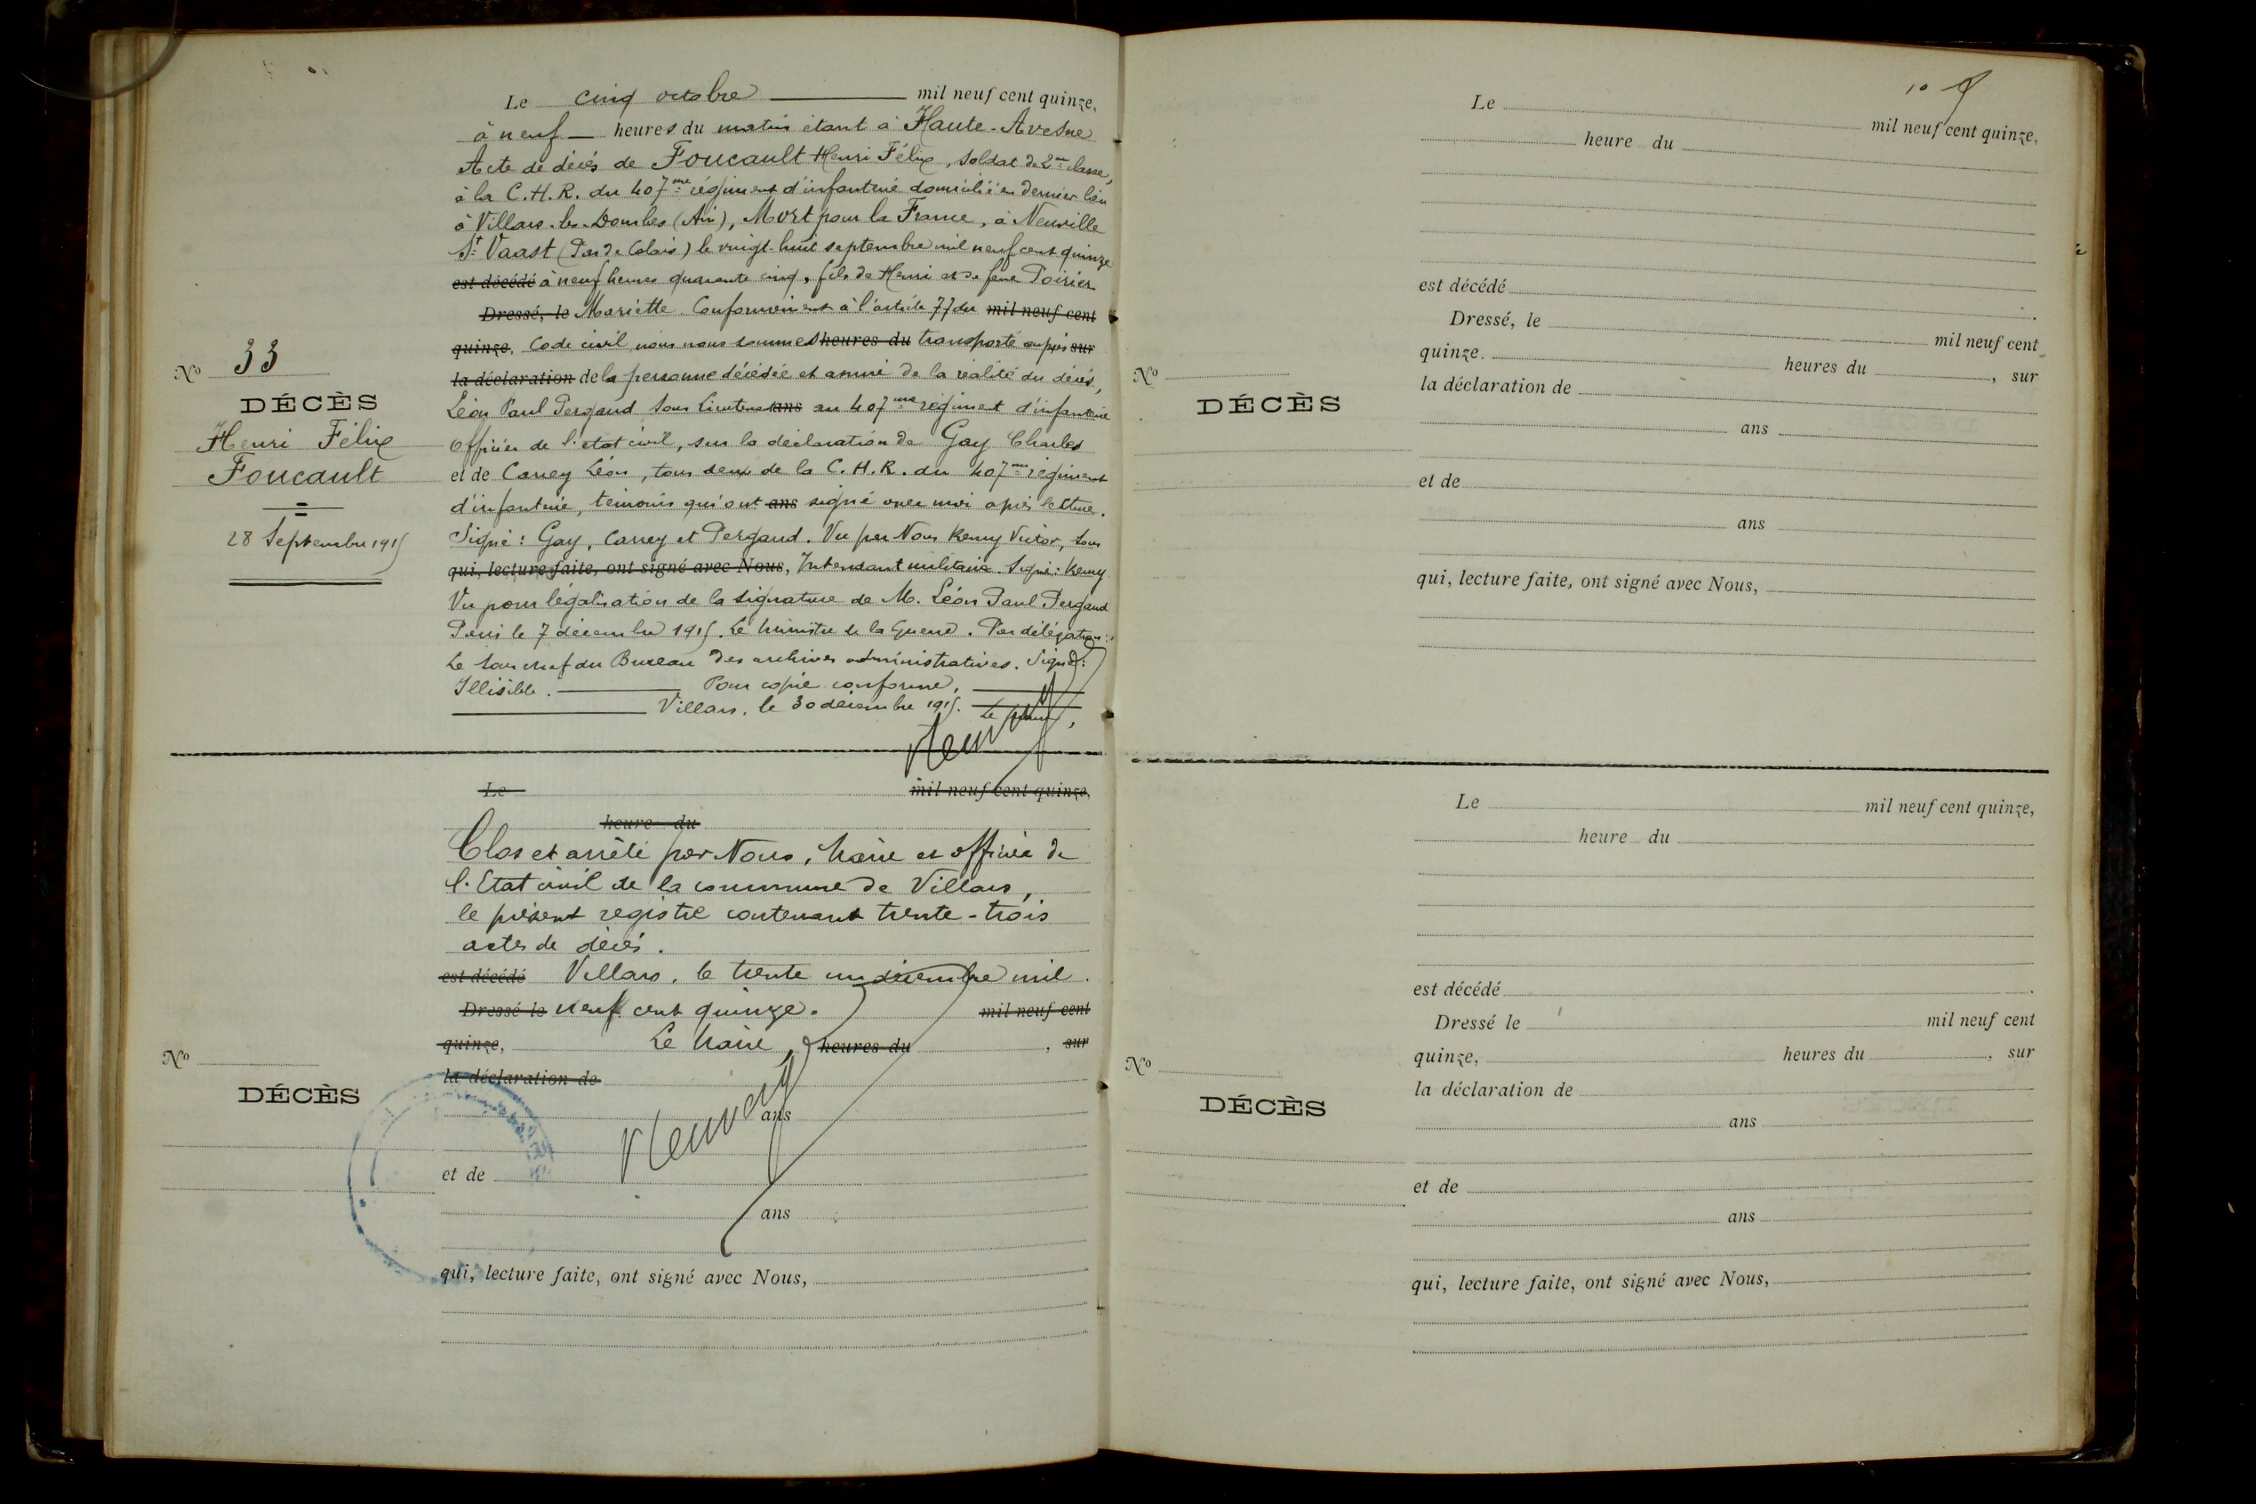 Le cinq octobre mil neuf cent quinze,
à neuf heures du matin étant à Haute-Avesne
Acte de décès de Foucault Henri Félix, soldat de 2me classe,
à la C.H.R. du 407me régiment d'infanterie domicilié en dernier lieu
à Villars-les-Dombes (Ain), Mort pour la France, à Neuville
St Vaast (Pas de Calais) le vingt-huit septembre mil neuf cent quinze
est décédé à neuf heures quarante cinq, fils de Henri et de feue Poirier
Dressé, le Mariette. Conformément à l'article 77 du mil neuf cent
quinze. Code civil, nous nous sommes heures du transporté auprès sur
la déclaration de la personne décédée et assuré de la réalité du décès,
Léon Paul Pergaud Sous Lieutenant ans au 407me régiment d'infanterie
officier de l'état civil, sur la déclaration de Gay Charles
et de Carrey Léon, tous deux de la C.H.R. du 407me régiment
d'infanterie, témoins qui ont ans signé avec moi après lecture.
Signé : Gay, Carrey et Pergaud. Vu par Nous Remy Victor, Sous
qui, lecture faite, ont signé avec Nous, Intendant militaire. Signé : Remy
Vu pour légalisation de la signature de M. Léon Paul Pergaud
Paris le 7 décembre 1915. Le Ministre de la Guerre. Par délégation :
Le Sous chef du Bureau des archives administratives. Signé :
Illisible. Pour copie conforme,
Villars, le 30 décembre 1915. Le Maire,
No 33
DÉCÈS
Henri Félix
Foucault
28 Septembre 1915
Le mil neuf cent quinze,
heure du
Clos et arrêté par Nous, Maire et officier de
l'Etat civil de la commune de Villars,
le présent registre contenant trente-trois
actes de décès.
est décédé Villars, le trente un décembre mil
Dressé le neuf cent quinze. mil neuf cent
quinze, Le Maire, heures du , sur
la déclaration de
ans
et de
ans
qui, lecture faite, ont signé avec Nous,
No
DÉCÈS
10
Le mil neuf cent quinze,
heure du
est décédé .
Dressé, le mil neuf cent
quinze. heures du , sur
la déclaration de
ans
et de
ans
qui, lecture faite, ont signé avec Nous,
No
DÉCÈS
Le mil neuf cent quinze,
heure du
est décédé .
Dressé le mil neuf cent
quinze, heures du , sur
la déclaration de
ans
et de
ans
qui, lecture faite, ont signé avec Nous,
No
DÉCÈS